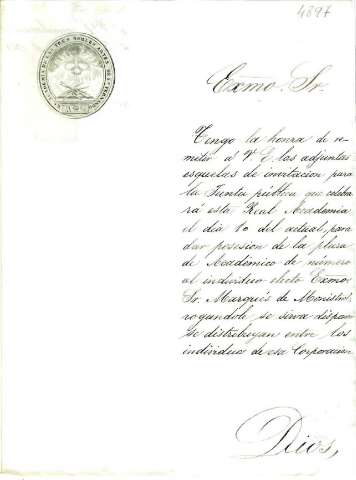 4897
Exmo. Sr.
Tengo la honra de re-
mitir a V. E. las adjuntas
esquelas de invitacion para
la Junta pública que celeba
rá esta Real Academia
el dia 1o del actual, para
dar posesion de la plaza
de Académico de número
al individuo electo Exmo.
Sr. Marqués de Monistrol
rogandole se sirva disponer
se distribuyan entre los
individuos de esa Corporacion.
Dios,